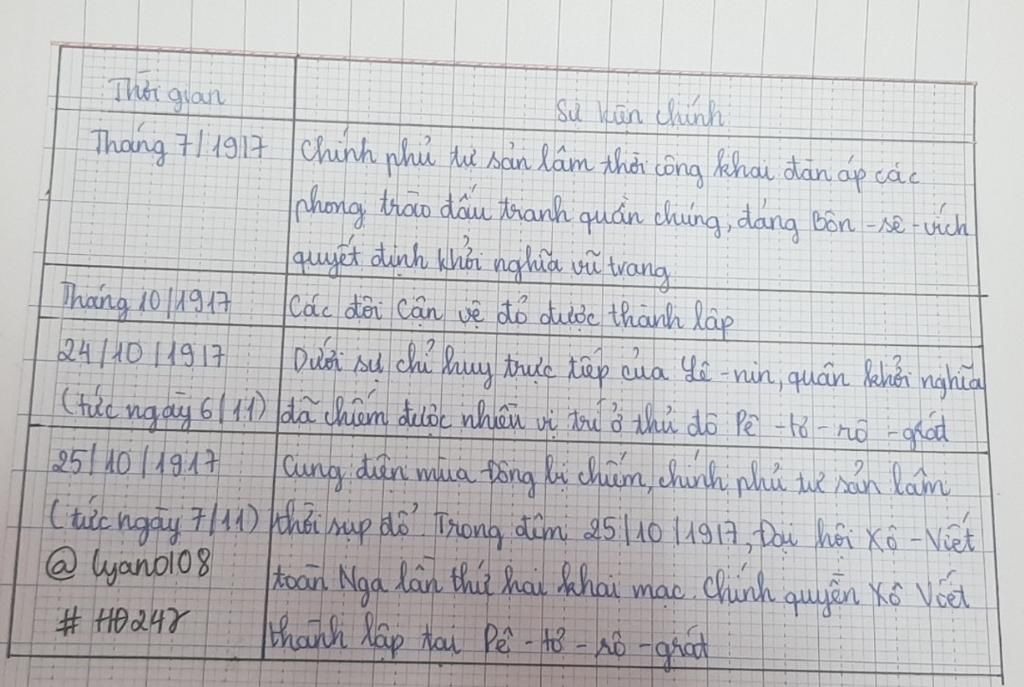 Thời gian
Sự kiện chính
Tháng 7/1917
Chính phủ tư sản lâm thời công khai đàn áp các
phong trào đấu tranh quần chúng, đảng Bôn-sê-vích
quyết định khởi nghĩa vũ trang
Tháng 10/1917
Các đội Cận vệ đỏ được thành lập
24/10/1917
(tức ngày 6/11)
Dưới sự chỉ huy trực tiếp của Lê-nin, quân khởi nghĩa
đã chiếm được nhiều vị trí ở thủ đô Pê-tơ-rô-grát
25/10/1917
(tức ngày 7/11)
@ lyano108
# HĐ247
Cung điện mùa Đông bị chiếm, chính phủ tư sản lâm
thời sụp đổ. Trong đêm 25/10/1917, Đại hội Xô-Viết
toàn Nga lần thứ hai khai mạc. Chính quyền Xô Viết
thành lập tại Pê-tơ-rô-grát